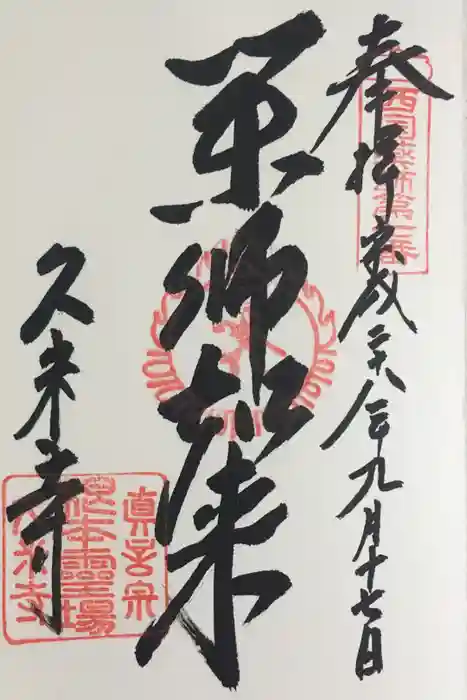 奉拝
平成二十八年九月十七日
西国薬師第二番
薬師如来
久米寺
真言宗
根本霊場
久米寺